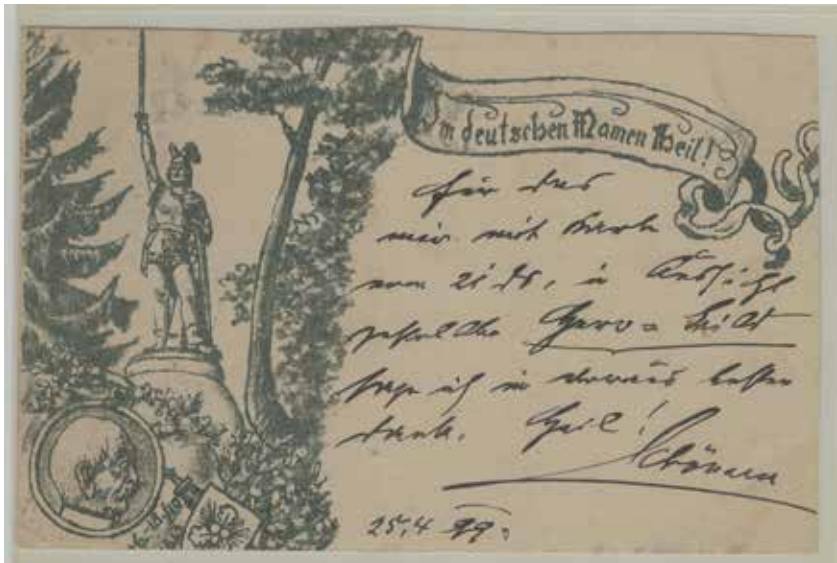 Im deutschen Namen Heil!
für das
mir mit Karte
vom 21 ds, in Aussicht
gestellte
sage ich im voraus besten
Dank. Heil!
Schönerer
25.4 99.